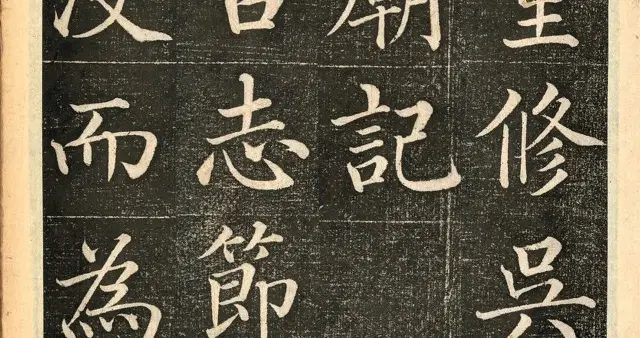 重修吳
廟記
古志節
没而為